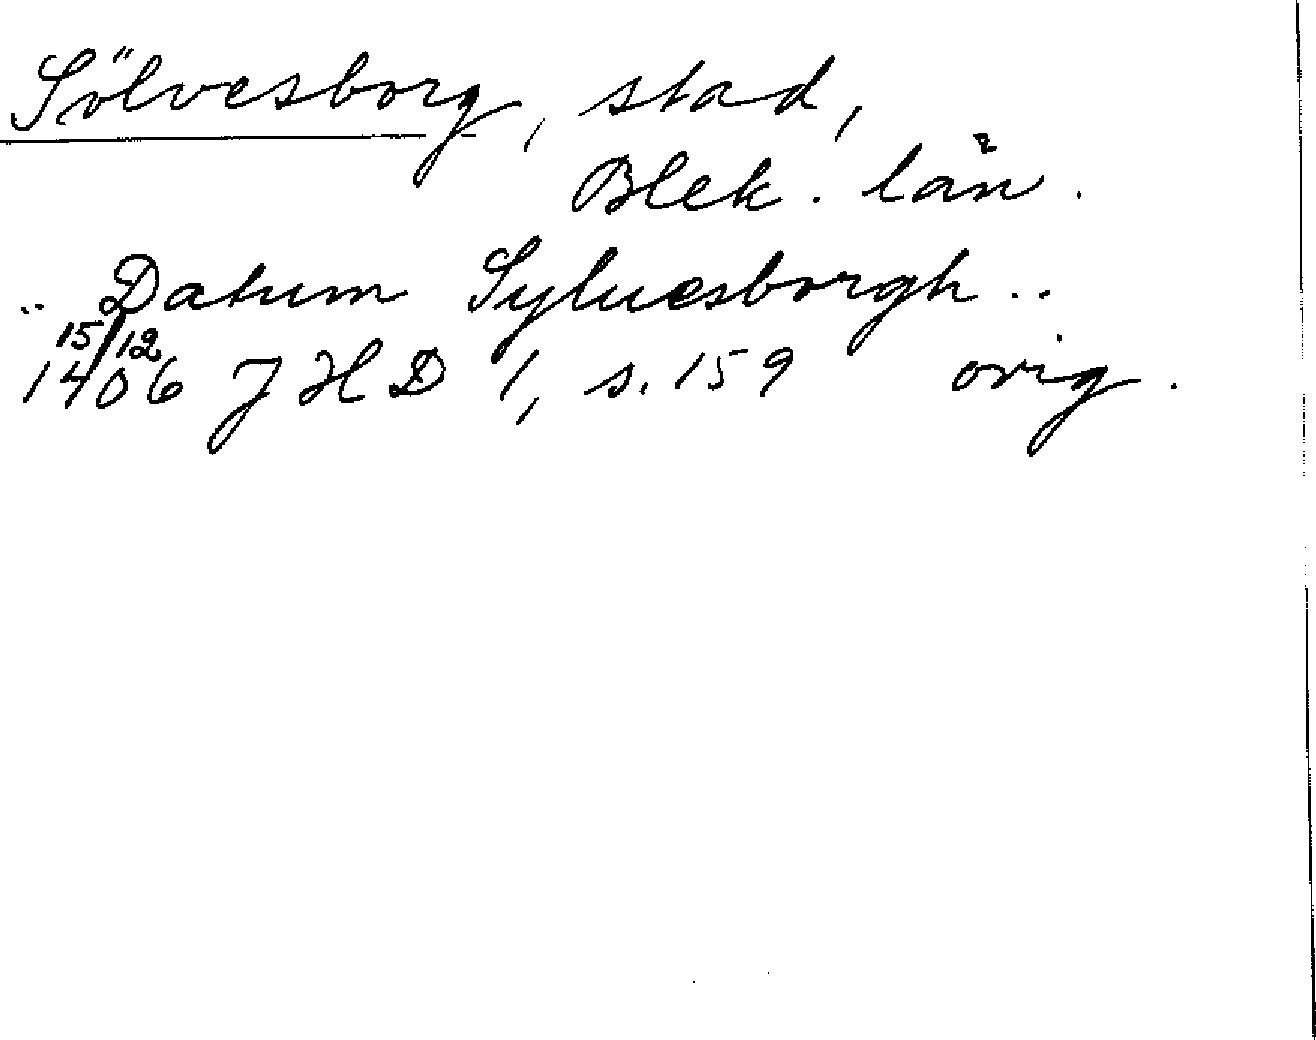 Sölvesborg, stad,
Blek. län.
.. Datum Syluesborgh ..
15/12
1406 JHD 1, s. 159 orig.